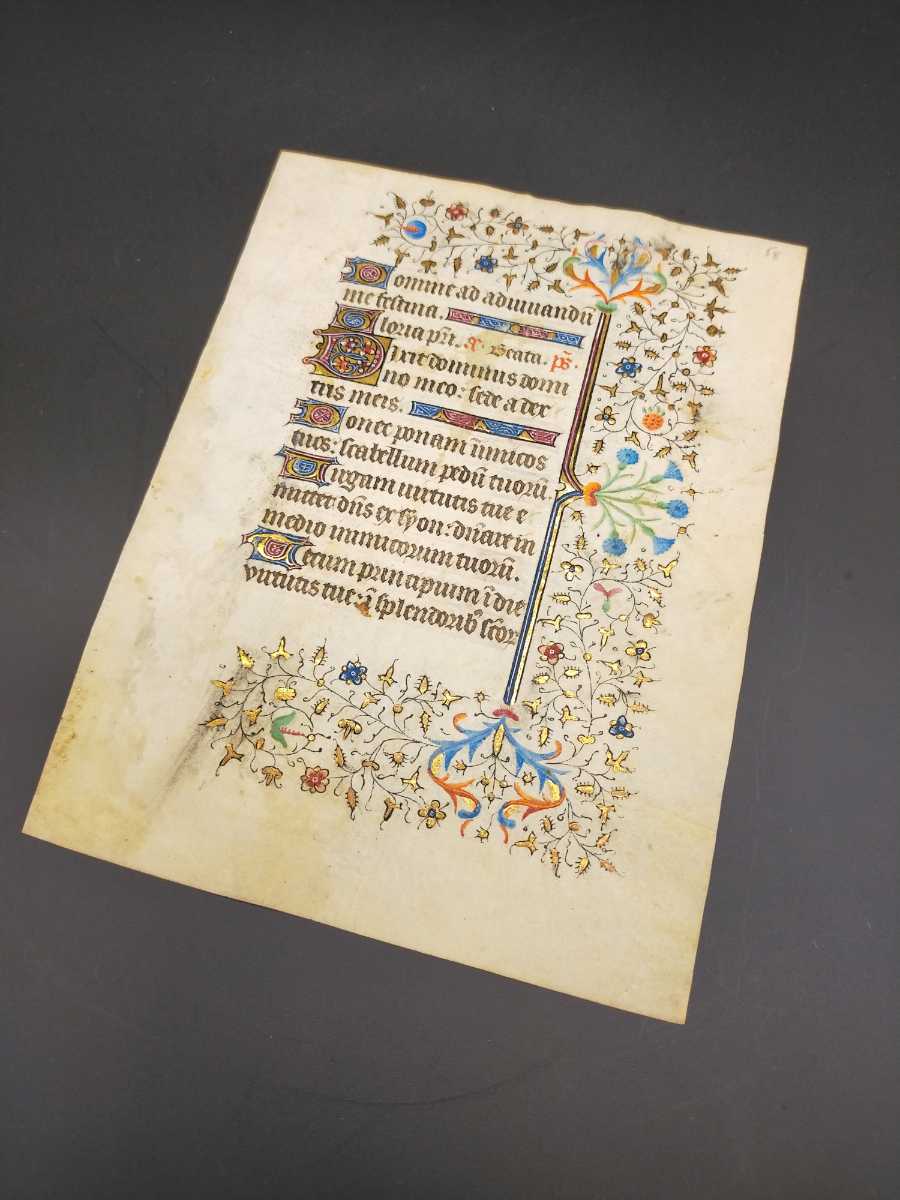 58
Domine ad adiuuandū
me festina.
Gloria pr̄i. a. Beata. ps̄.
Dixit dominus domi
no meo: sede a dex
tris meis.
Donec ponam īimicos
tuos: scabellum pedū tuorū.
Uirgam uirtutis tue e
mittet dn̄s ex syon: dn̄are in
medio inimicorum tuorū.
Tecum principium ī die
uirtutis tue: ī splendorib᷒ sc̄or